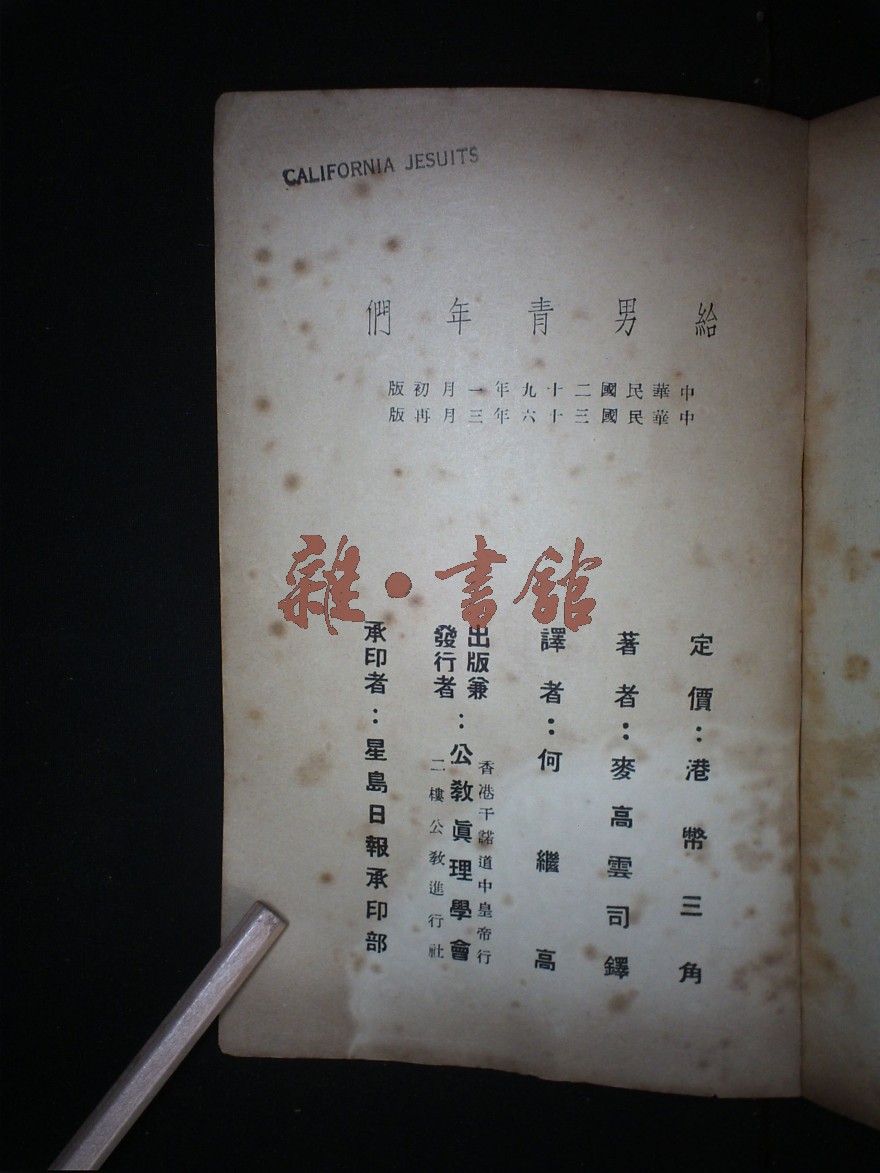 CALIFORNIA JESUITS
給男青年們
中華民國二十九年一月初版
中華民國三十六年三月再版
雜·書館
定價：港幣三角
著者：麥高雲司鐸
譯者：何繼高
出版兼發行者：公教眞理學會
香港干諾道中皇帝行
二樓公教進行社
承印者：星島日報承印部